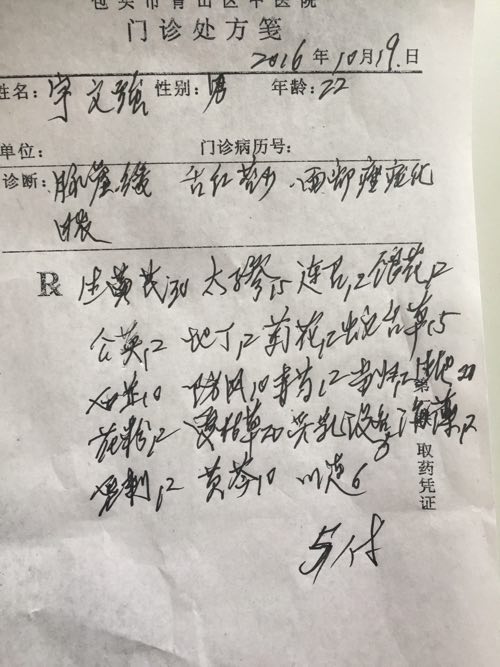 包头市青山区中医院
门诊处方笺
2016年10月19日
姓名：宇文强 性别：男 年龄：22
单位： 门诊病历号：
诊断： 舌红苔少 面部痤疮化
R 生黄芪30 太子参15 连召12 银花12
公英12 地丁12 菊花12 舌草15
白芷10 防风10 赤芍12 当归12 生地20
花粉12 夏枯草20 没各 海藻12
皂刺12 黄芩10 川连6
取药凭证
5付